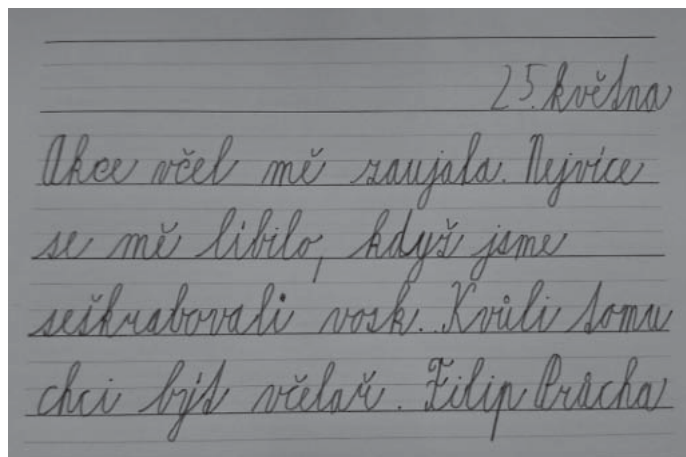 25. května
Akce včel mě zaujala. Nejvíce
se mě líbilo, když jsme
seškrabovali vosk. Kvůli tomu
chci být včelař. Filip Průcha